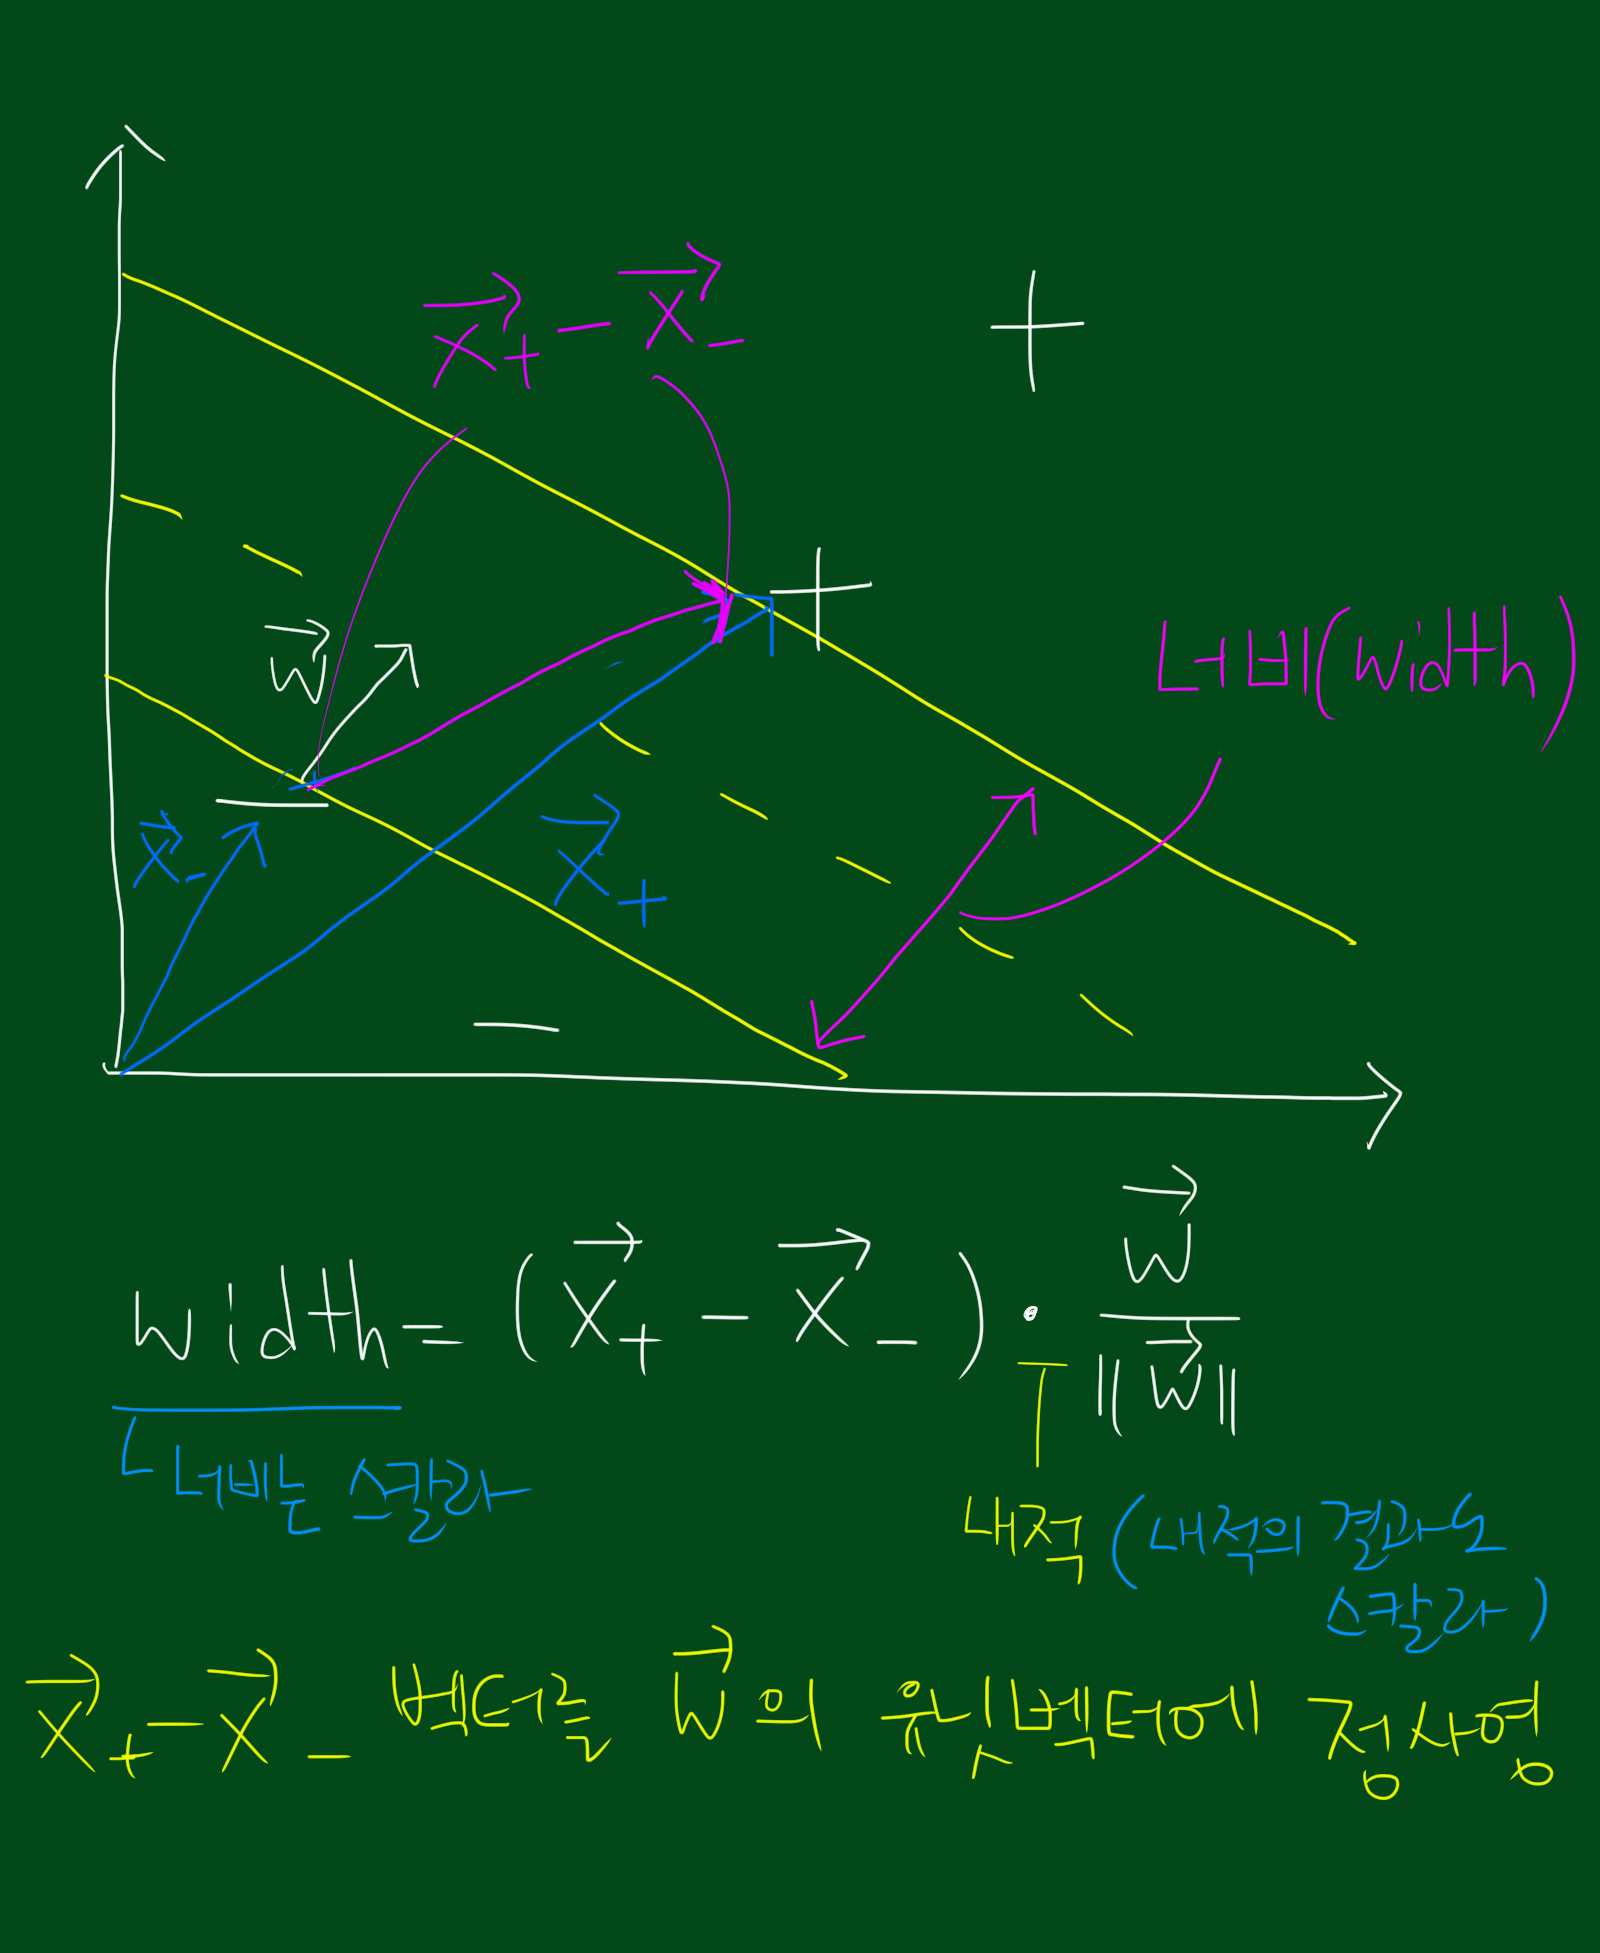 x⃗₊ - x⃗₋
+
w⃗
+
너비(width)
x⃗₋
x⃗₊
-
-
width = (x⃗₊ - x⃗₋) · w⃗ / ||w⃗||
너비는 스칼라
내적 (내적의 결과도
스칼라)
x⃗₊ - x⃗₋ 벡터를 w⃗의 유닛벡터에 정사영